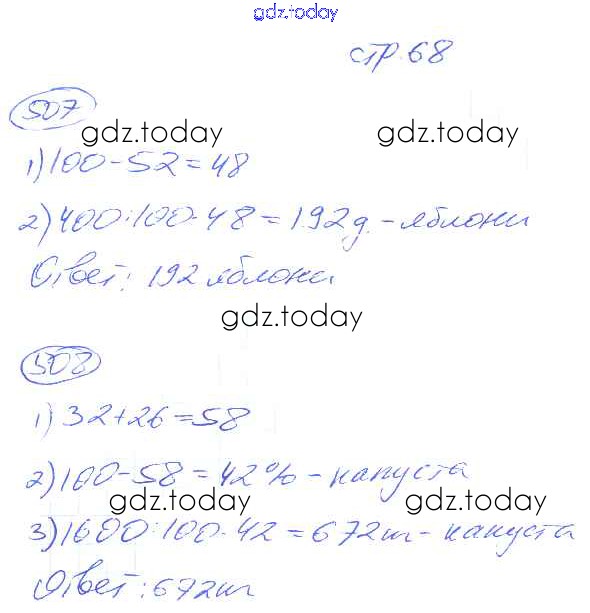 gdz.today
стр. 68
507
gdz.today gdz.today
1) 100-52=48
2) 400:100·48=192д. - яблони
Ответ: 192 яблони
gdz.today
508
1) 32+26=58
2) 100-58=42% - капуста
gdz.today gdz.today
3) 1600:100·42=672т - капуста
Ответ: 672т